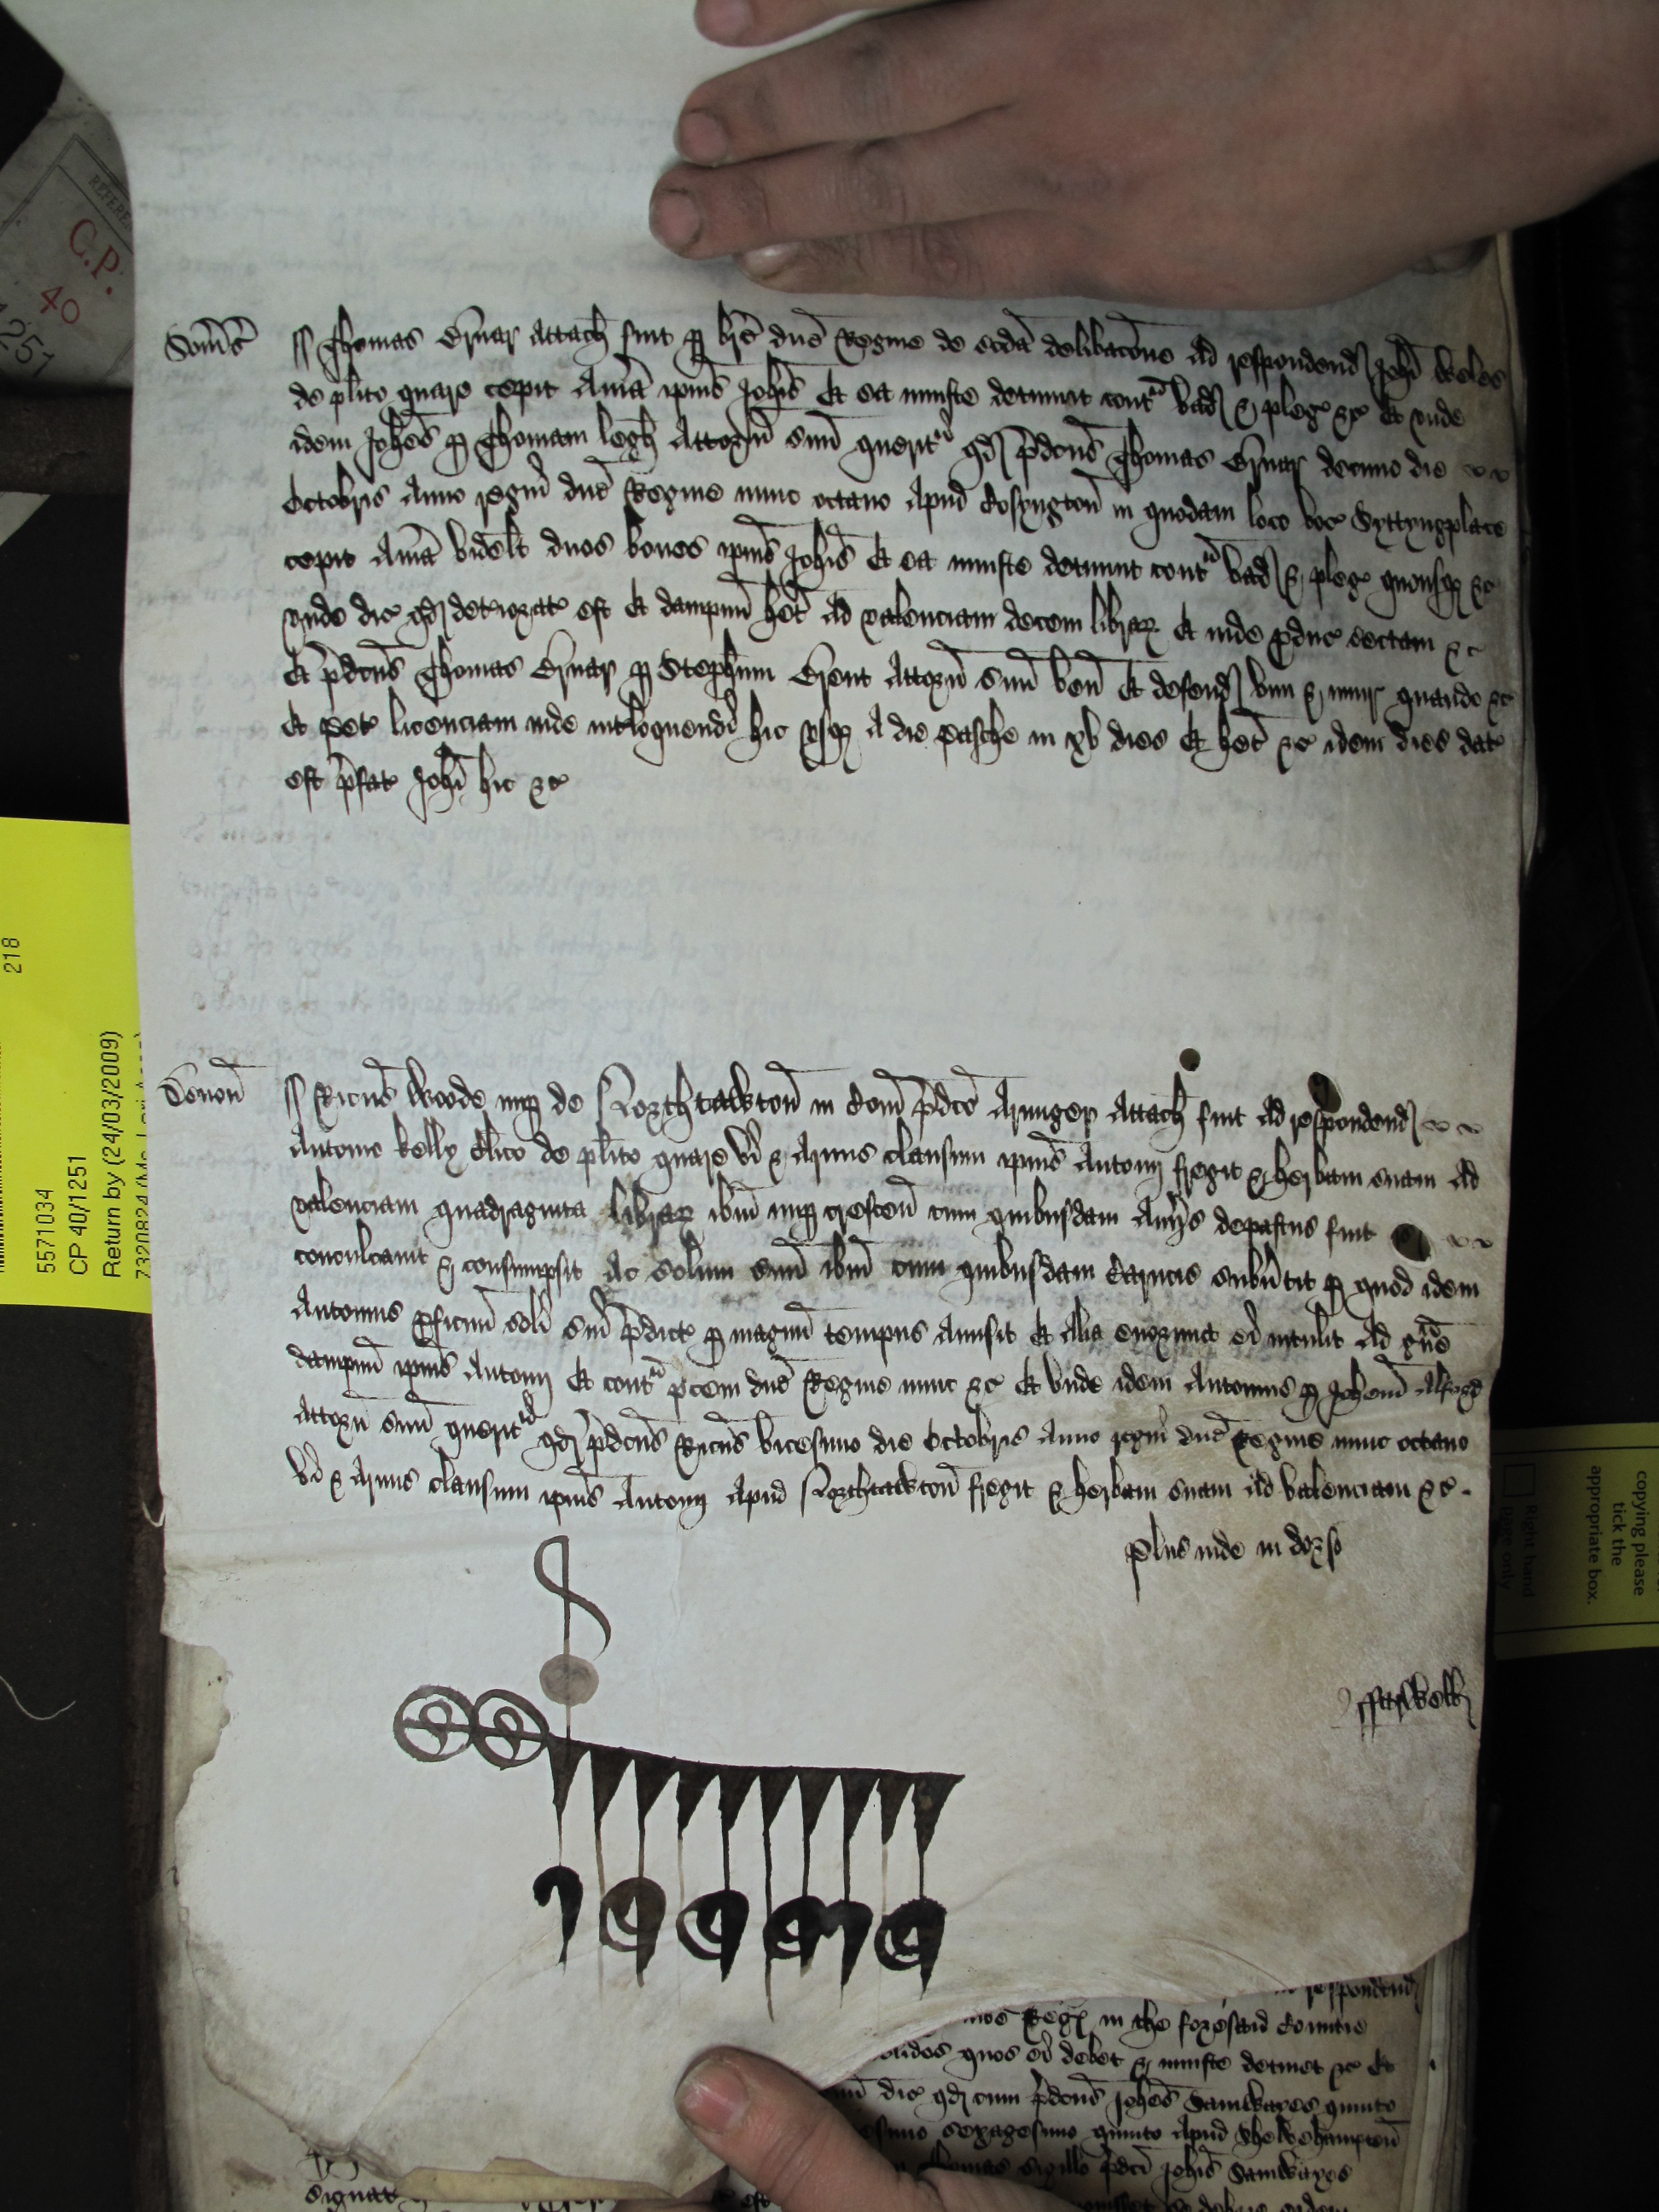 REFERE
C.P.
40
1251
Som's's
Thomas Ernar attach fuit p bre dne Regine de scda delibacone ad respondend Johi Weles
de plito quare cepit Au'ia ipius Johis et ea iniuste detinuit cont^a vad & pleg &c et unde
idem Johes p Thomam Legh Attorn suu querit^r qd p'dcus Thomas Ernar decimo die
Octobris Anno regni dne Regine nunc octavo apud Cosyngton in quodam loco voc Syttyngplace
cepit Au'ia videlt duos boves ipius Johis et ea iniuste detinuit cont^a vad & pleg quousq &c
unde dic qd deteriorat est et dampnu het ad valenciam decem librar et inde p'duc sectam &c
Et p'dcus Thomas Ernar p Stephum Brent Attorn suu ven et defend vim & iniur quando &c
Et pet licenciam inde int'loquendi hic usq a die Pasche in xv dies et het &c idem dies dat
est p'fat Johi hic &c
Devon
Ricus Woode nup de Northtawton in Com p'dco Armiger attach fuit ad respondend
Antonio Kelly Clico de plito quare vi & armis clausum ipius Antonij fregit & herbam suam ad
valenciam quadraginta librar ibm nup crescen cum quibusdam Au'ijs depastus fuit
conculcavit & consumpsit Ac solum suu ibm cum quibusdam Carucis subu'tit p quod idem
Antonius p'ficuu soli sui p'dict p magnu tempus amisit Et alia enormia ei intulit ad g^ave
dampnu ipius Antonij Et cont^a pcem dne Regine nunc &c Et unde idem Antonius p Johem Alford
Attorn suu querit^r qd p'dcus Ricus vicesimo die Octobris Anno regni dne Regine nunc octavo
vi & armis clausum ipius Antonij apud Northtawton fregit & herbam suam ad valenciam &c
Plus inde in dorso
Haswell
218
5571034
CP 40/1251
Return by (24/03/2009)
copying please
tick the
appropriate box.
Right hand
page only
respondend
Regs in the foresaid Countie
quos ei debet & iniuste detinet &c Et
dic qd cum p'dcus Johes Samwayes quinto
sexagesimo quinto apud
sigillo p'dci Johis Samwayes
signat